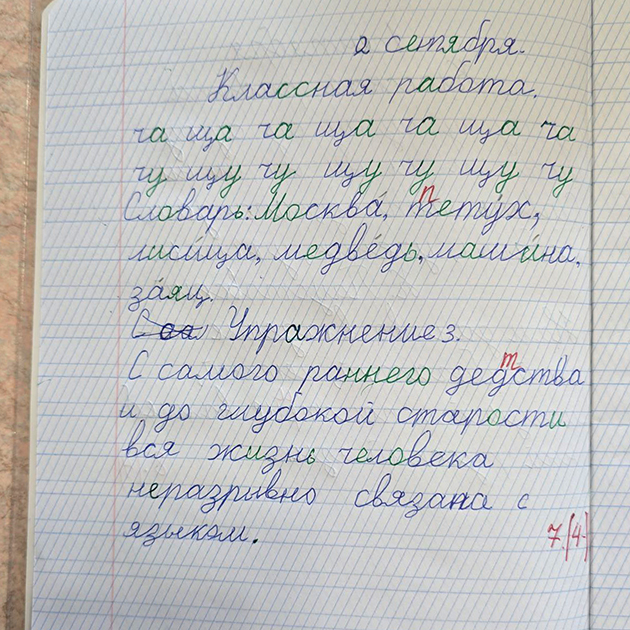 2 сентября.
Классная работа.
ча ща ча ща ча ща ча
чу щу чу щу чу щу чу
Словарь: Москва́, петý́х,
лиси́ца, медве́дь, маши́на,
за́яц.
Упражнение 3.
С самого раннего детства
и до глубокой старости
вся жизнь человека
неразривно связана с
языком.
7 (4-)